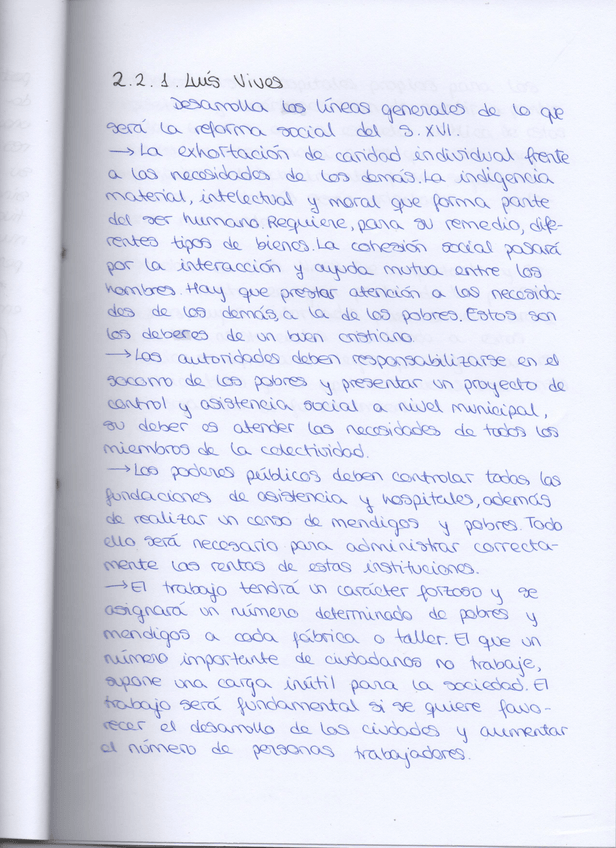 2.2.1. Luís Vives
Desarrolla las líneas generales de lo que
será la reforma social del S. XVI.
→La exhortación de caridad individual frente
a las necesidades de los demás. La indigencia
material, intelectual y moral que forma parte
del ser humano. Requiere, para su remedio, dife-
rentes tipos de bienes. La cohesión social pasará
por la interacción y ayuda mutua entre los
hombres. Hay que prestar atención a las necesida-
des de los demás, a la de los pobres. Estos son
los deberes de un buen cristiano.
→Las autoridades deben responsabilizarse en el
socorro de los pobres y presentar un proyecto de
control y asistencia social a nivel municipal,
su deber es atender las necesidades de todos los
miembros de la colectividad.
→Los poderes públicos deben controlar todas las
fundaciones de asistencia y hospitales, además
de realizar un censo de mendigos y pobres. Todo
ello será necesario para administrar correcta-
mente las rentas de estas instituciones.
→El trabajo tendrá un carácter forzoso y se
asignará un número determinado de pobres y
mendigos a cada fábrica o taller. El que un
número importante de ciudadanos no trabaje,
supone una carga inútil para la sociedad. El
trabajo será fundamental si se quiere favo-
recer el desarrollo de las ciudades y aumentar
el número de personas trabajadores.